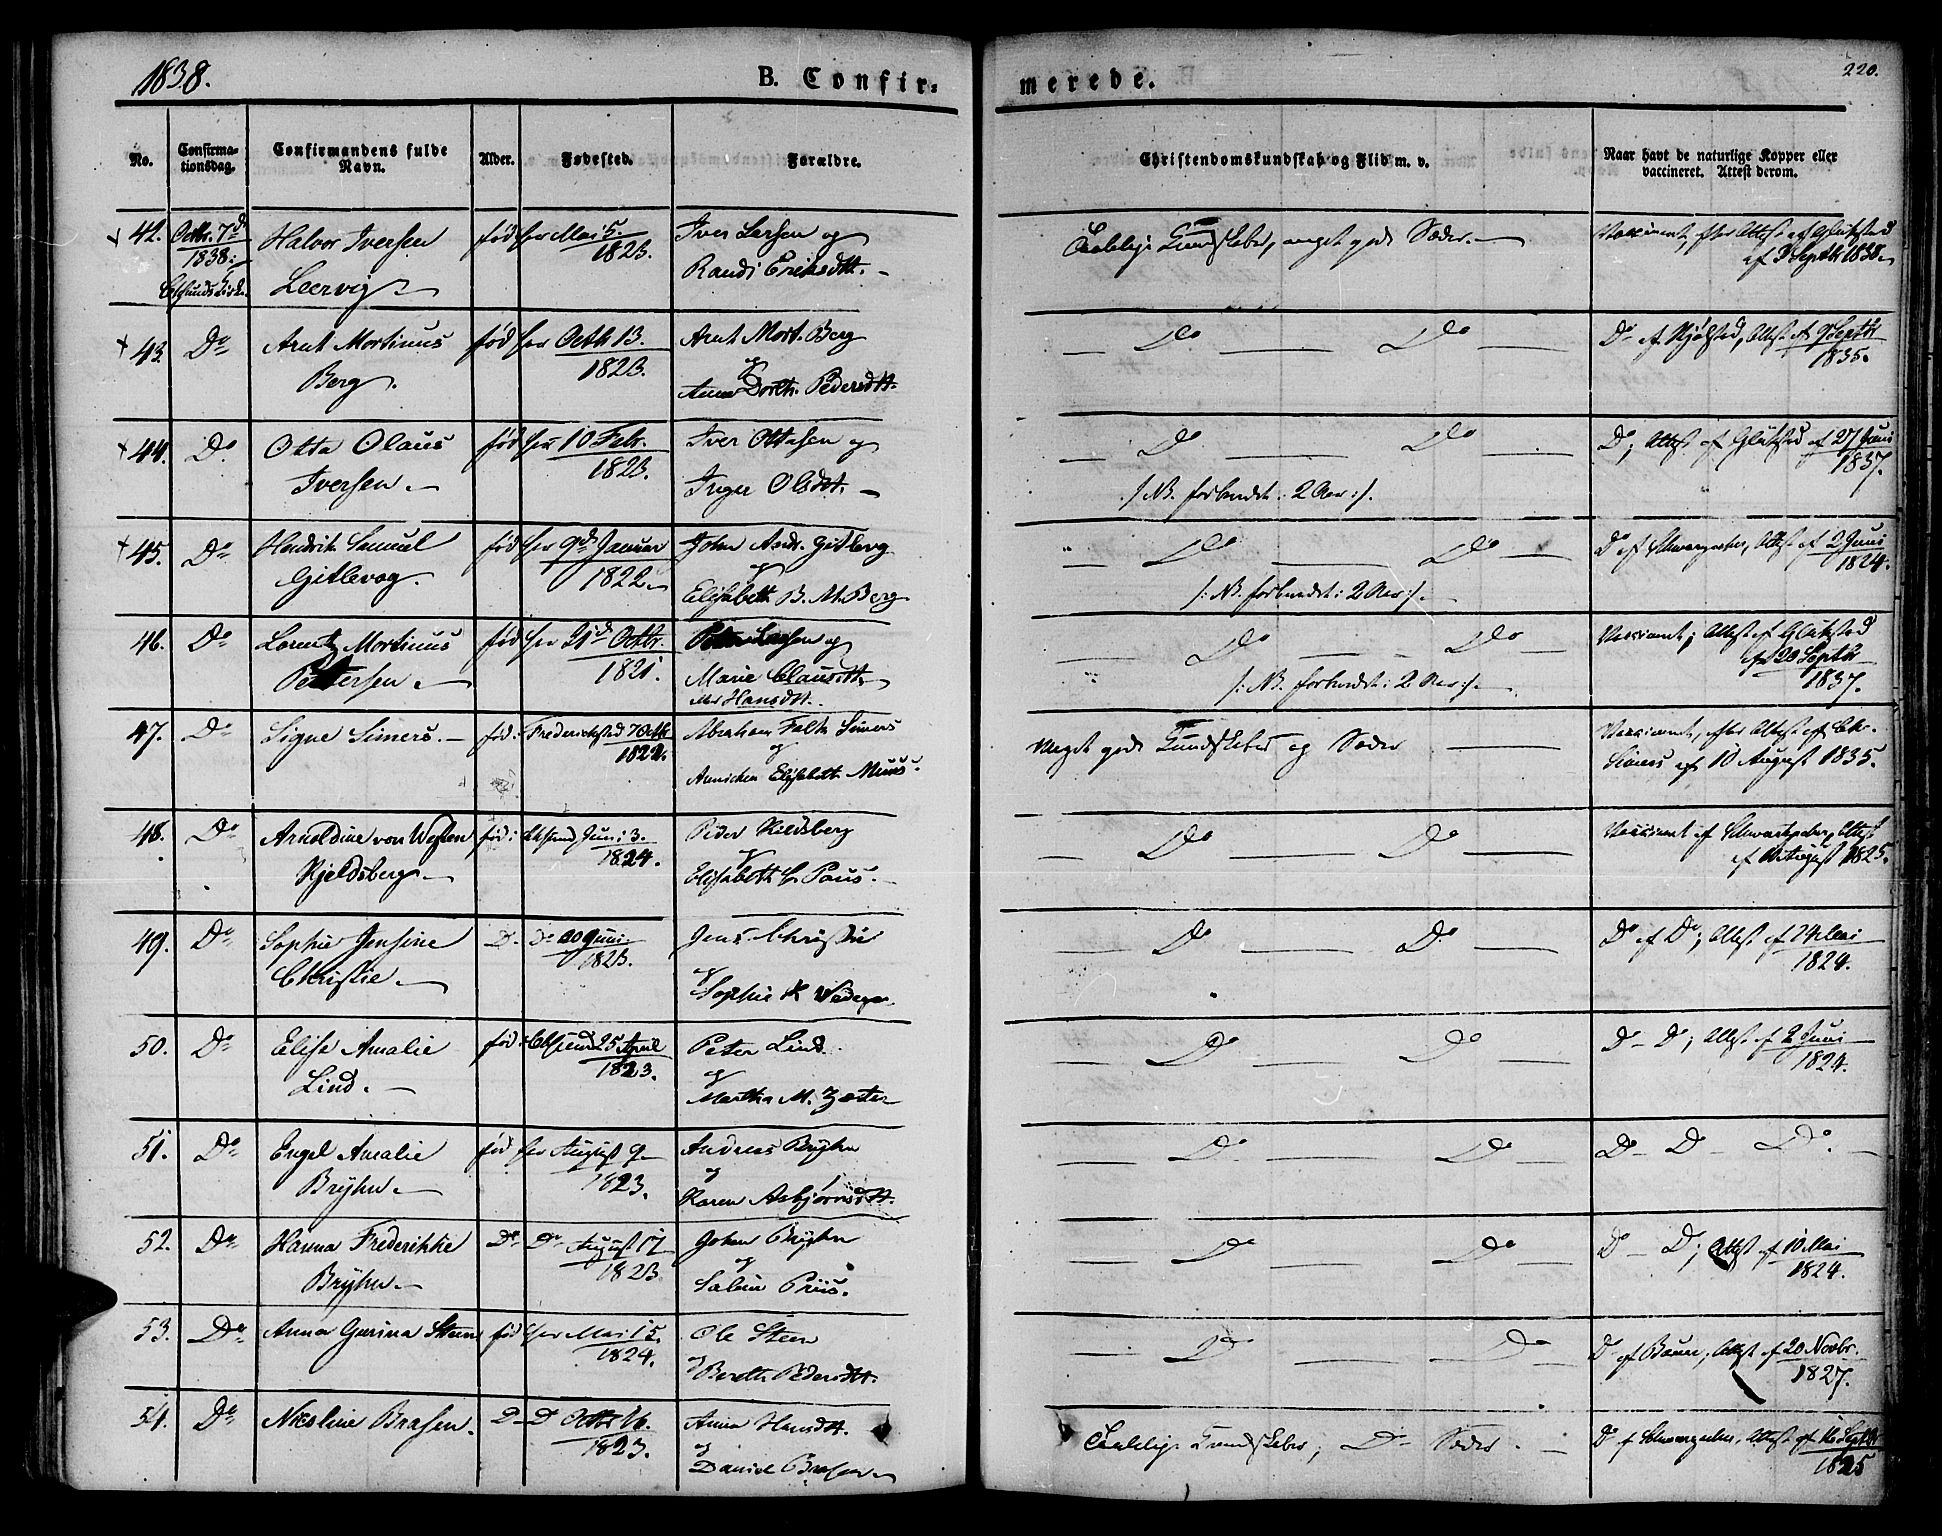 1838.
B. Confir=
merede.
220.
No.
Confirma=
tionsdag.
Confirmandens fulde
Navn.
Alder.
Fødested.
Forældre.
Christendomskundskab og Flid m. v.
Naar havt de naturlige Kopper eller
vaccineret. Attest derom.
42. Octbr. 7d Halvor Iversen fød her Mai 5. Iver Larsen og
1838. 1823.
Leervig Randi Eriksdtt.
Kundskaber, meget gode Sæder.
Vaccineret, efter Attest af
af 3 Septbr 1838.
43. Do Arnt Mortinus fød her Octb 13. Arnt Mort. Berg
1823. og
Berg. Anna Dorth. Pedersdtt.
Do Do
Do af Attest af 9 Septbr
1835.
44. Do Otto Olaus fød her 10 Febr. Iver Ottesen og
1823.
Iversen. Inger Olsdtt.
Do Do
/: NB. forberedt: 2 Aar :/.
Do, Attest af 27 Juni
1837.
45. Do Hendrik Samuel fød her 9d Januar John Andr. Gitlevog
1822. og
Gitlevog. Elisabeth B. M. Berg
Do Do
/: NB. forberedt: 2 Aar :/.
Do af Attest af 2 Juni
1824.
46. Do Lorentz Mortinus fød her 21d Octbr. Larsen og
1821.
Pettersen. Marie Clausdtt.
Hansdtt.
Do Do
/: NB. forberedt: 2 Aar :/.
Vaccineret, Attest af
af 20 Septbr
1837.
47. Do Signe Simers. fød: Frederichstad 7 Octb Abraham Falk Simers
1822. og
Annichen Elisabeth Muus.
Meget gode Kundskaber og Sæder
Vaccineret, efter Attest af Chr.
Simers af 10 August 1835.
48. Do Arnoldine von Westen fød: Juni 3. Peder Kildsberg
1824. og
Kjeldsberg. Elisabeth Paus.
Do Do
Vaccineret af Attest
af August 1825.
49. Do Sophie Jensine Do do Juni Jens Christie
1823. og
Christie. Sophie
Do Do
Do af Do, Attest af 24 Mai
1824.
50. Do Elise Amalie fød: 25 April Peter Lind
1823. og
Lind. Martha M.
Do Do
Do – Do; Attest af 2 Juni
1824.
51. Do Engel Amalie fød her August 9 Andreas Bryhn
1823. og
Bryhn. Karen Asbjørnsdtt.
Do Do
Do – Do – Do.
52. Do Hanna Frederikke Do Do August 17 Johan Bryhn
1823 og
Bryhn.
Do Do
Do – Do; Attest af 10 Mai
1824.
53. Do Anna Gurina Steen fød her Mai 15. Ole Steen
1824. og
Bereth Pedersdtt.
Do Do
Do af Attest af 20 Novbr.
1827.
54. Do Nicoline Brasen. Do Do Octbr 16. Anna Hansdtt.
1823. og
Daniel Brasen
Kundskaber; Do Sæder.
Do af Attest af 16 Septbr
1825